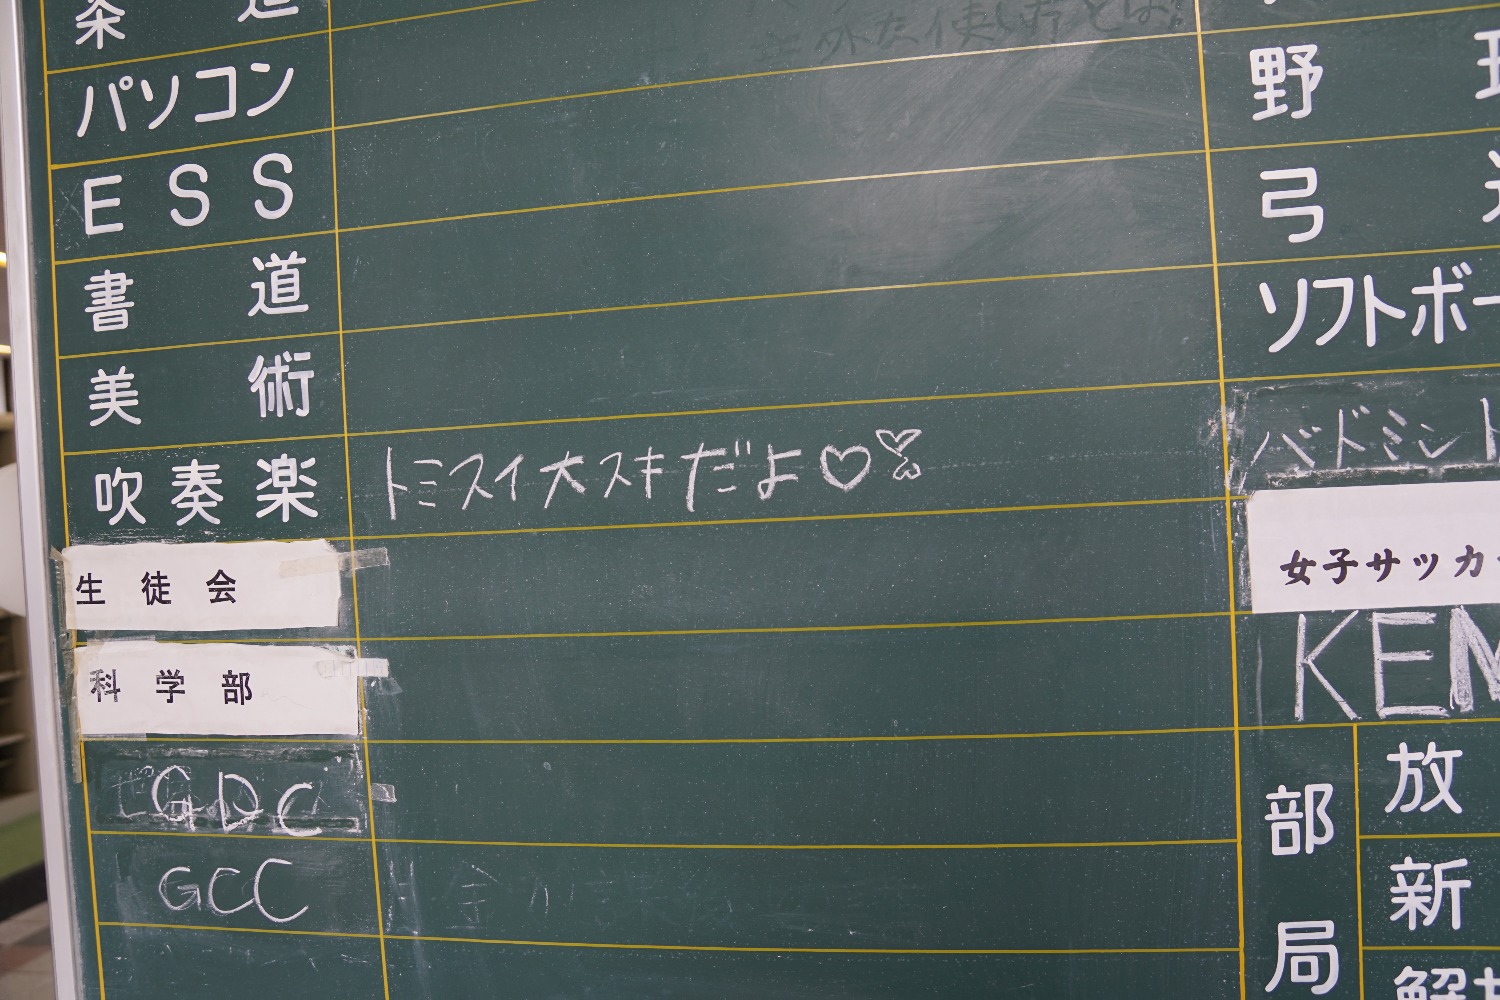 茶 道
パソコン
ESS
書 道
美 術
吹奏楽 トミスイ大スキだよ♡
生徒会
科学部
GDC
GCC
野
弓
ソフトボー
バドミント
女子サッカー
KEM
部局
放
新